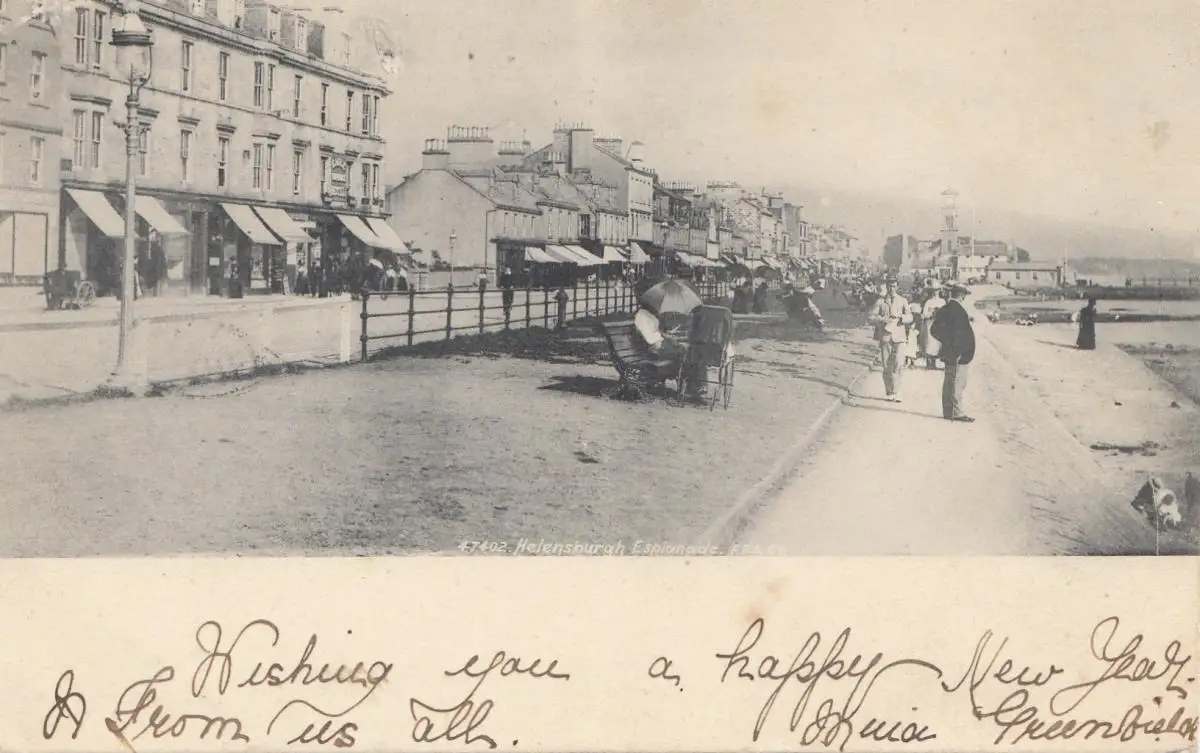 47402. Helensburgh Esplanade.
Wishing you a happy New Year.
From us all.
Greenfield